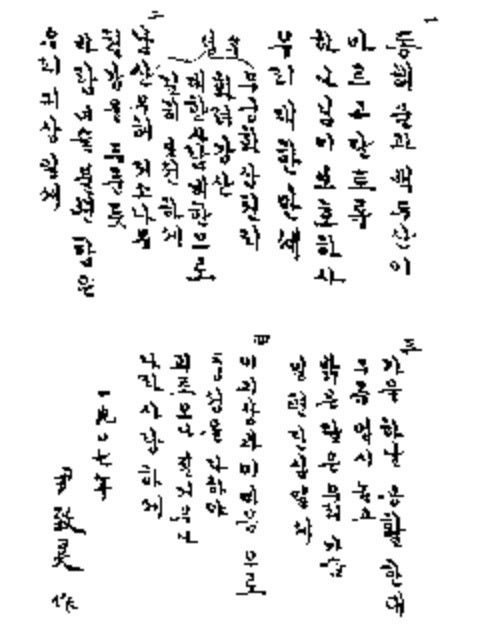 一
동해물과 백두산이
마르고 달토록
하나님이 보호하사
우리 대한 만세
후렴
무궁화 삼천리
화려강산
대한사람 대한으로
길이 보전하세
二
남산우헤 저 소나무
철갑을 두른듯
바람이슬 불변함은
우리 긔상일세
三
가을하날 공활한대
구름 업시 높고
밝은달은 우리가슴
일편단심일세
四
이긔상과 이마음으로
충성을 다하야
괴로오나 질거우나
나라사랑하세
一九〇七年
尹致昊 作